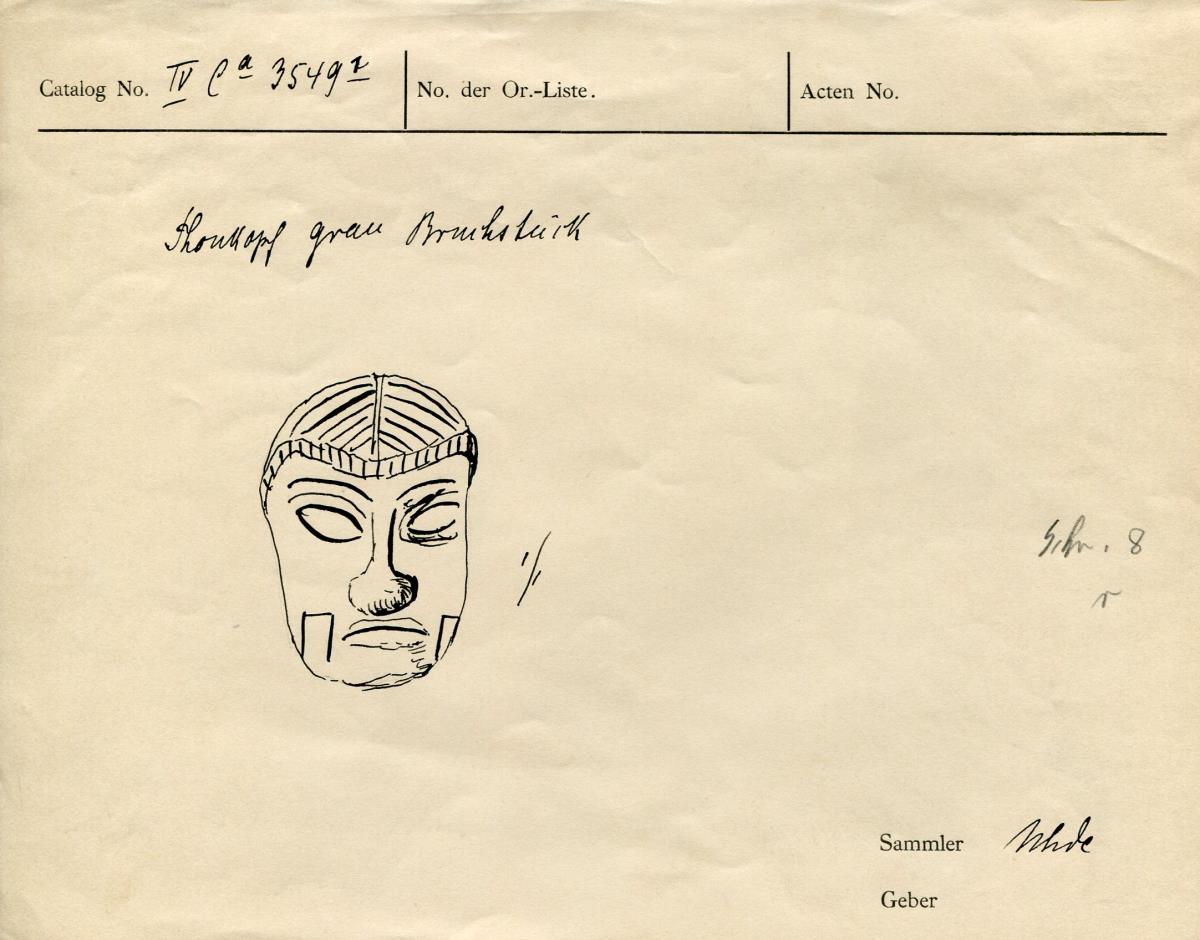 Catalog No. IV Ca 3549 r
No. der Or.-Liste.
Acten No.
Thonkopf grau Bruchstück
1/1
Schr. 8
r
Sammler Uhde
Geber